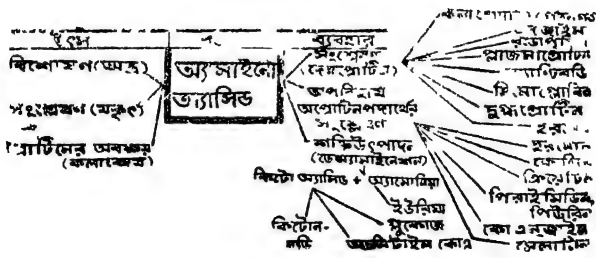 উৎস
ব্যবহার
বিশোষণ (অন্ত্র)
সংশ্লেষণ (যকৃৎ)
প্রোটিনের অবক্ষয়
(কলাকোষে)
অ্যামাইনো
অ্যাসিড
সংশ্লেষণ
(দেহপ্রোটিন)
অপচিতি
অপ্রোটিনপদার্থের
সংশ্লেষণ
শক্তিউৎপাদন
(ডেঅ্যামাইনেশন)
কিটো অ্যাসিড + অ্যামোনিয়া
ইউরিয়া
গ্লুকোজ
কিটোন-
বডি
অ্যাসিটাইল কোএ
প্লাজমাপ্রোটিন
অ্যান্টিবডি
হিমোগ্লোবিন
দুগ্ধপ্রোটিন
হরমোন
হরমোন
কোলিন
ক্রিয়েটিন
পিরাইমিডিন,
পিউরিন
কো এনজাইম
মেলানিন